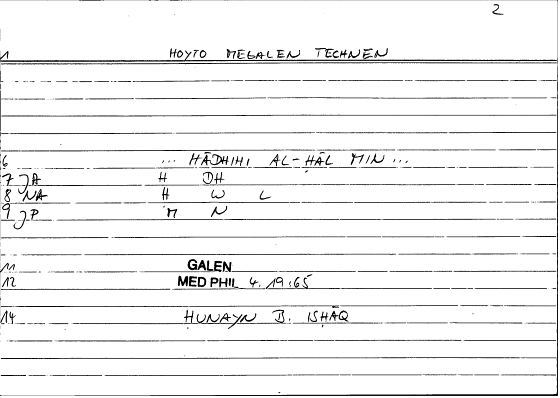 2
1 HOYTO MEGALEN TECHNEN
6 ... HĀDHIHI AL-ḤĀL MIN ...
7 JA H DH
8 NA Ḥ W L
9 JP M N
11 GALEN
12 MED PHIL 4.19:65
14 ḤUNAYN B. ISḤĀQ